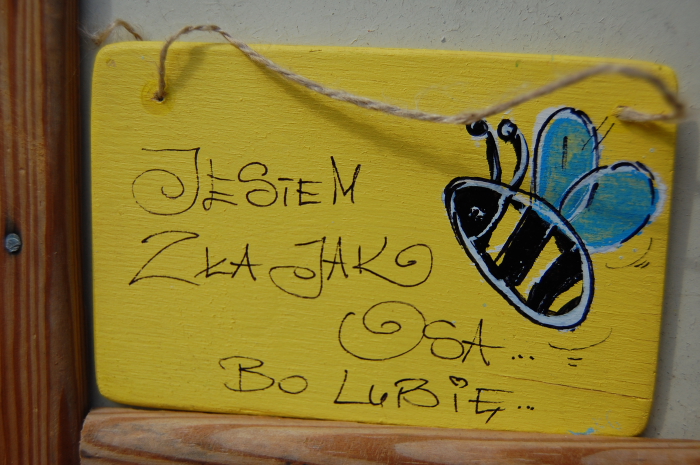 JESTEM
ZŁA JAK
OSA...
BO LUBIĘ...